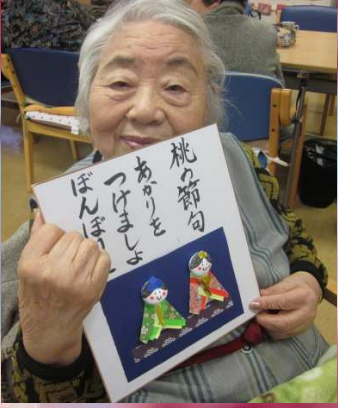 桃の節句
あかりを
つけましょ
ぼんぼり